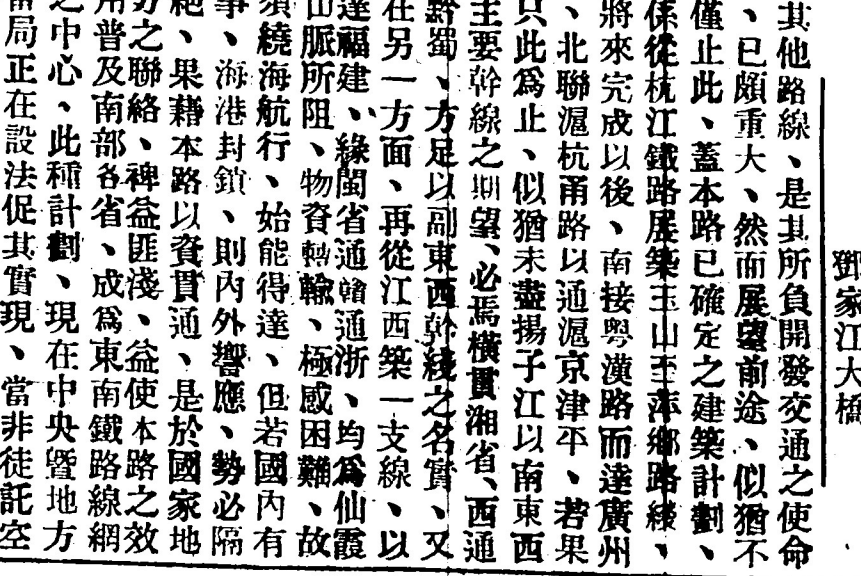 鄧家江大橋
其他路線、是其所負開發交通之使命
、已頗重大、然而展望前途、似猶不
僅止此、蓋本路已確定之建築計劃、
係從杭江鐵路展築玉山至萍鄉路綫、
將來完成以後、南接粤漢路而達廣州
、北聯滬杭甬路以通滬京津平、若果
只此爲止、似猶未盡揚子江以南東西
主要幹線之期望、必焉橫貫湘省、西通
黔蜀、方足以副東西幹綫之名實、又
在另一方面、再從江西築一支線、以
達福建、緣閩省通贛通浙、均爲仙霞
山脈所阻、物資轉輸、極感困難、故
須繞海航行、始能得達、但若國內有
事、海港封鎖、則內外響應、勢必隔
絕、果藉本路以資貫通、是於國家地
方之聯絡、裨益匪淺、益使本路之效
用普及南部各省、成爲東南鐵路線網
之中心、此種計劃、現在中央暨地方
當局正在設法促其實現、當非徒託空